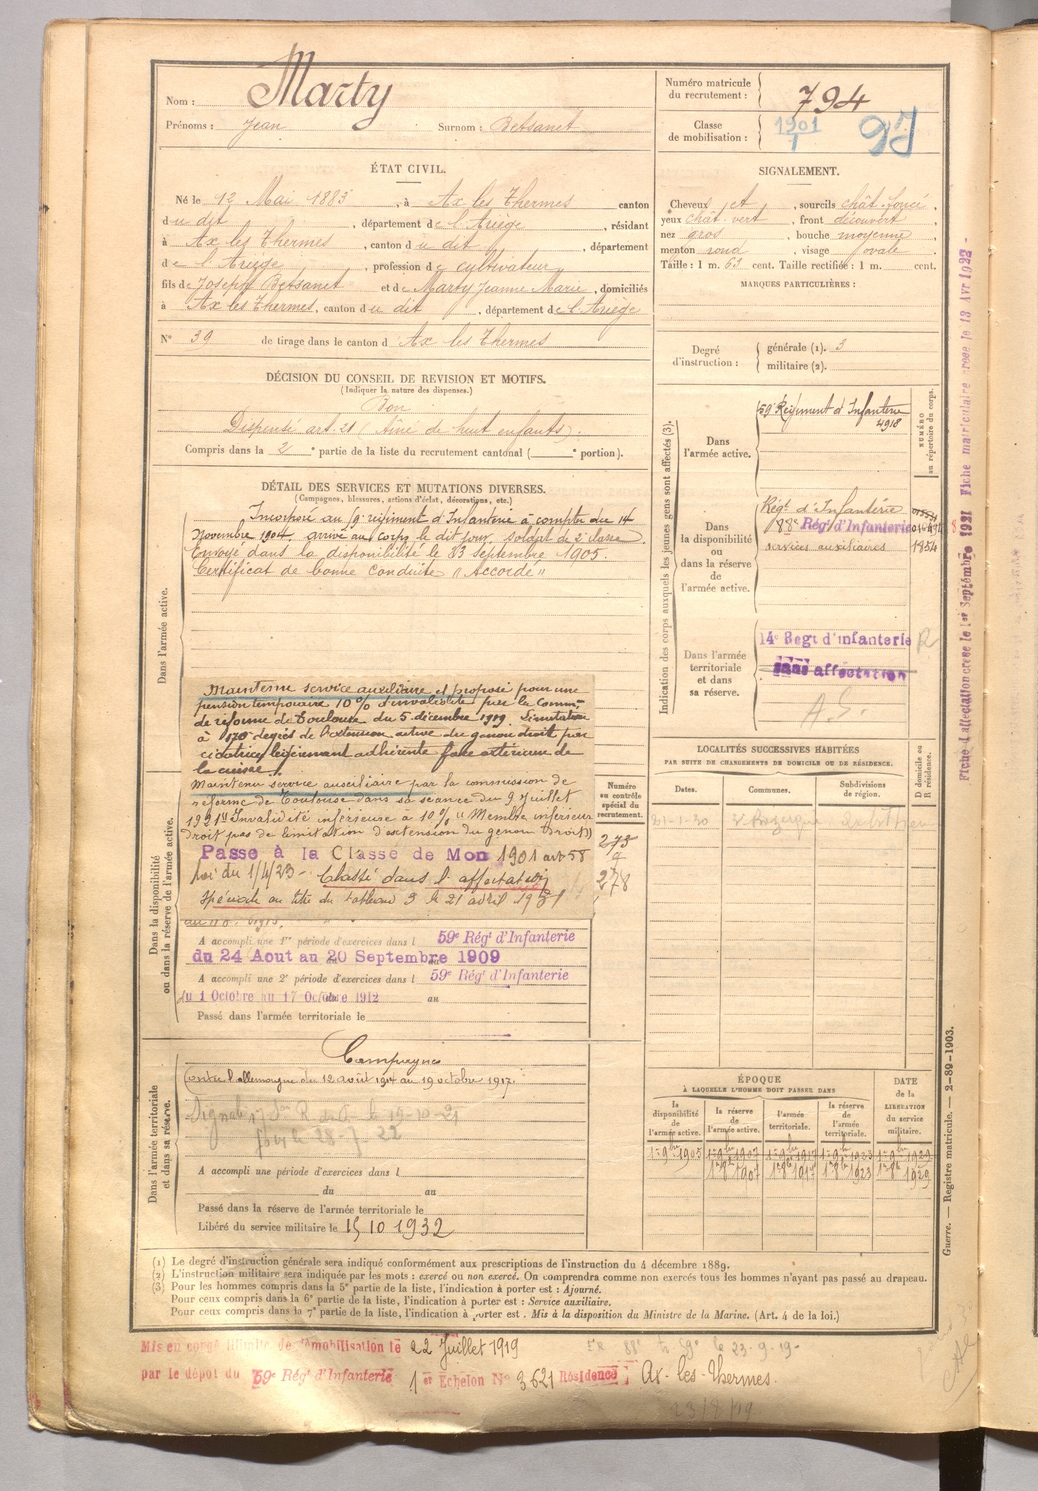 Nom : Marty
Prénoms : Jean Surnom : Betsanet
Numéro matricule du recrutement : 794
Classe de mobilisation : 1901
ÉTAT CIVIL.
Né le 12 Mai 1883, à Ax les Thermes canton
du dit, département de l'Ariège, résidant
à Ax les Thermes, canton du dit, département
de l'Ariège, profession de cultivateur
fils de Joseph Betsanet et de Marty Jeanne Marie, domiciliés
à Ax les Thermes, canton du dit, département de l'Ariège
N° 39 de tirage dans le canton d Ax les Thermes
SIGNALEMENT.
Cheveux et, sourcils chât. foncé,
yeux chât. vert, front découvert
nez gros, bouche moyenne,
menton rond, visage ovale
Taille : 1 m. 63 cent. Taille rectifiée : 1 m. cent.
MARQUES PARTICULIÈRES :
Degré d'instruction : générale (1). 3
militaire (2).
DÉCISION DU CONSEIL DE REVISION ET MOTIFS.
(Indiquer la nature des dispenses.)
Bon
Dispensé art. 21 (Aîné de huit enfants).
Compris dans la 2e partie de la liste du recrutement cantonal ( e portion).
DÉTAIL DES SERVICES ET MUTATIONS DIVERSES.
(Campagnes, blessures, actions d'éclat, décorations, etc.)
Dans l'armée active.
Incorporé au 59e régiment d'Infanterie à compter du 14
Novembre 1904, arrivé au corps le dit jour, soldat de 2e classe.
Envoyé dans la disponibilité le 23 septembre 1905.
Certificat de bonne conduite "Accordé"
Dans la disponibilité ou dans la réserve de l'armée active.
Maintenu service auxiliaire et proposé pour une
pension temporaire 10% d'invalidité par la Comm.
de réforme de Toulouse du 5 décembre 1919. Limitation
à 170 degrés de l'extension active du genou droit par
cicatrice légèrement adhérente face antérieure de
la cuisse.
Maintenu service auxiliaire par la commission de
réforme de Toulouse dans sa séance du 9 Juillet
1921 Invalidité inférieure à 10% "Membre inférieur
droit pas de limitation d'extension du genou droit"
Passé à la Classe de Mon 1901 art 58
loi du 1/4/23 - Classé dans l'affectation
Spéciale au titre du tableau 3 le 21 avril 1931
Numéro au contrôle spécial du recrutement.
275
278
A accompli une 1re période d'exercices dans l 59e Régt d'Infanterie
du 24 Aout au 20 Septembre 1909
A accompli une 2e période d'exercices dans l 59e Régt d'Infanterie
du 1 Octobre au 17 Octobre 1912 au
Passé dans l'armée territoriale le
Dans l'armée territoriale et dans sa réserve.
Campagnes
contre l'allemagne du 12 août 1914 au 19 octobre 1917.
A accompli une période d'exercices dans l
du au
Passé dans la réserve de l'armée territoriale le
Libéré du service militaire le 15 10 1932
Indication des corps auxquels les jeunes gens sont affectés (3).
Dans l'armée active. 59e Régiment d'Infanterie
4918
NUMÉRO au répertoire du corps.
Dans la disponibilité ou dans la réserve de l'armée active.
Régt d'Infanterie
88e Régt d'Infanterie
services auxiliaires 1854
Dans l'armée territoriale et dans sa réserve.
14e Regt d'infanterie
sans affectation
A.S.
LOCALITÉS SUCCESSIVES HABITÉES
PAR SUITE DE CHANGEMENTS DE DOMICILE OU DE RÉSIDENCE.
Dates. Communes. Subdivisions de région. D domicile ou R résidence.
ÉPOQUE
À LAQUELLE L'HOMME DOIT PASSER DANS
la disponibilité de l'armée active. la réserve de l'armée active. l'armée territoriale. la réserve de l'armée territoriale. DATE de la LIBÉRATION du service militaire.
1er 9bre 1905 1er 9bre 1907 1er 9bre 1917 1er 9bre 1923 1er 9bre 1929
1er 8bre 1907 1er 8bre 1917 1er 8bre 1923 1er 8bre 1929
Fiche d'affectation créée le 1er Septembre 1921 Fiche matriculaire créée le 13 Avr 1922 -
Guerre. — Registre matricule. — 2-89-1903.
(1) Le degré d'instruction générale sera indiqué conformément aux prescriptions de l'instruction du 4 décembre 1889.
(2) L'instruction militaire sera indiquée par les mots : exercé ou non exercé. On comprendra comme non exercés tous les hommes n'ayant pas passé au drapeau.
(3) Pour les hommes compris dans la 5e partie de la liste, l'indication à porter est : Ajourné.
Pour ceux compris dans la 6e partie de la liste, l'indication à porter est : Service auxiliaire.
Pour ceux compris dans la 7e partie de la liste, l'indication à porter est : Mis à la disposition du Ministre de la Marine. (Art. 4 de la loi.)
Mis en congé illimité de démobilisation le 22 Juillet 1919
par le dépôt du 59e Régt d'Infanterie 1er Echelon N° 3621 Résidence Ax-les-Thermes.